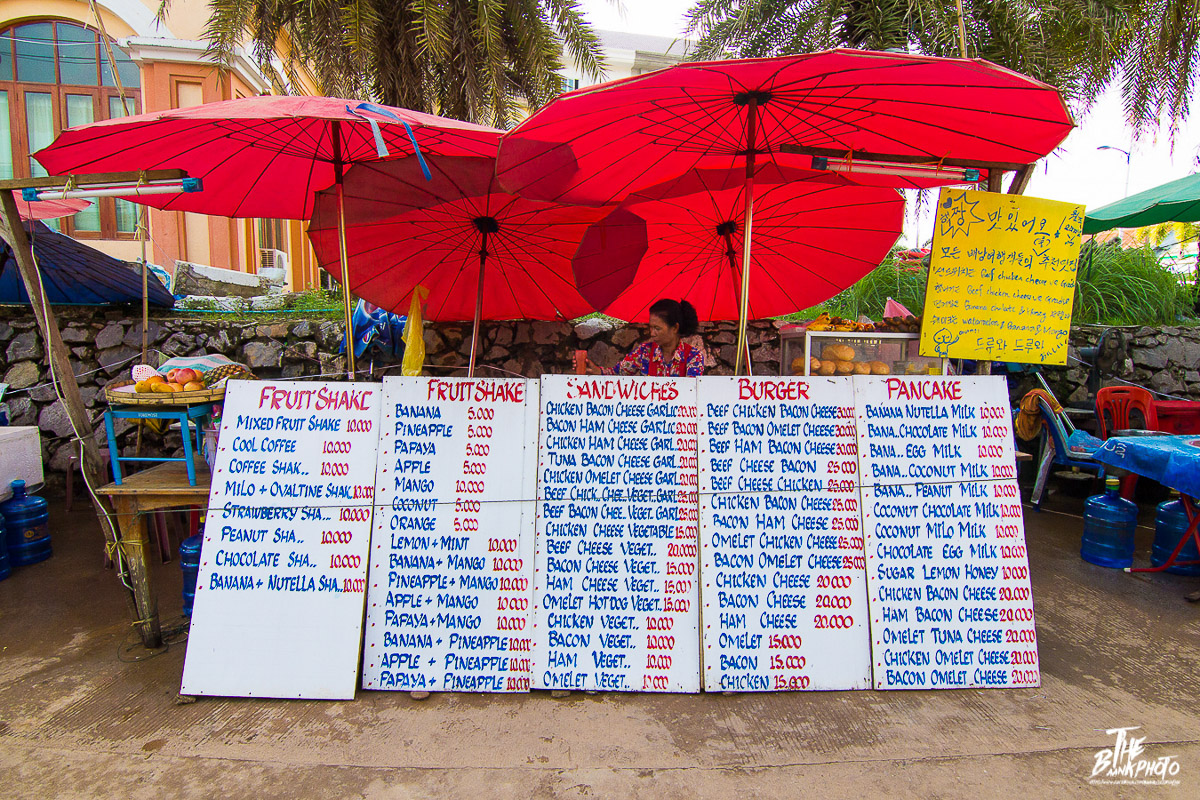 FRUIT SHAKE
MIXED FRUIT SHAKE 10.000
COOL COFFEE 10.000
COFFEE SHAK.. 10.000
MILO + OVALTINE SHAK. 10.000
STRAWBERRY SHA... 10.000
PEANUT SHA.. 10.000
CHOCOLATE SHA.. 10.000
BANANA + NUTELLA SHA... 10.000
FRUIT SHAKE
BANANA 5.000
PINEAPPLE 5.000
PAPAYA 5.000
APPLE 5.000
MANGO 10.000
COCONUT 5.000
ORANGE 5.000
LEMON + MINT 10.000
BANANA + MANGO 10.000
PINEAPPLE + MANGO 10.000
APPLE + MANGO 10.000
PAPAYA + MANGO 10.000
BANANA + PINEAPPLE 10.000
APPLE + PINEAPPLE 10.000
PAPAYA + PINEAPPLE 10.000
SANDWICHES
CHICKEN BACON CHEESE GARLIC 20.000
BACON HAM CHEESE GARLIC 20.000
CHICKEN HAM CHEESE GARL. 20.000
TUNA BACON CHEESE GARL. 20.000
CHICKEN OMELET CHEESE GARL 20.000
BEEF CHICK. CHEE. VEGET. GARL. 25.000
BEEF BACON CHEE. VEGET. GARL. 25.000
CHICKEN CHEESE VEGETABLE 15.000
BEEF CHEESE VEGET.. 20.000
BACON CHEESE VEGET.. 15.000
HAM CHEESE VEGET.. 15.000
OMELET HOT DOG VEGET.. 15.000
CHICKEN VEGET.. 10.000
BACON VEGET.. 10.000
HAM VEGET.. 10.000
OMELET VEGET.. 10.000
BURGER
BEEF CHICKEN BACON CHEESE 30.000
BEEF BACON OMELET CHEESE 30.000
BEEF HAM BACON CHEESE 30.000
BEEF CHEESE BACON 25.000
BEEF CHEESE CHICKEN 25.000
CHICKEN BACON CHEESE 25.000
BACON HAM CHEESE 25.000
OMELET CHICKEN CHEESE 25.000
BACON OMELET CHEESE 25.000
CHICKEN CHEESE 20.000
BACON CHEESE 20.000
HAM CHEESE 20.000
OMELET 15.000
BACON 15.000
CHICKEN 15.000
PANCAKE
BANANA NUTELLA MILK 10.000
BANA.. CHOCOLATE MILK 10.000
BANA.. EGG MILK 10.000
BANA.. COCONUT MILK 10.000
BANA.. PEANUT MILK 10.000
COCONUT CHOCOLATE MILK 10.000
COCONUT MILO MILK 10.000
CHOCOLATE EGG MILK 10.000
SUGAR LEMON HONEY 10.000
CHICKEN BACON CHEESE 20.000
HAM BACON CHEESE 20.000
OMELET TUNA CHEESE 20.000
CHICKEN OMELET CHEESE 20.000
BACON OMELET CHEESE 20.000
짱 맛있어요!
모든 배낭여행객들의 추천맛집
Beef chicken cheese
Beef chicken cheese
Banana
watermelon & Banana & Mango
드루와 드루와
THE BANKPHOTO